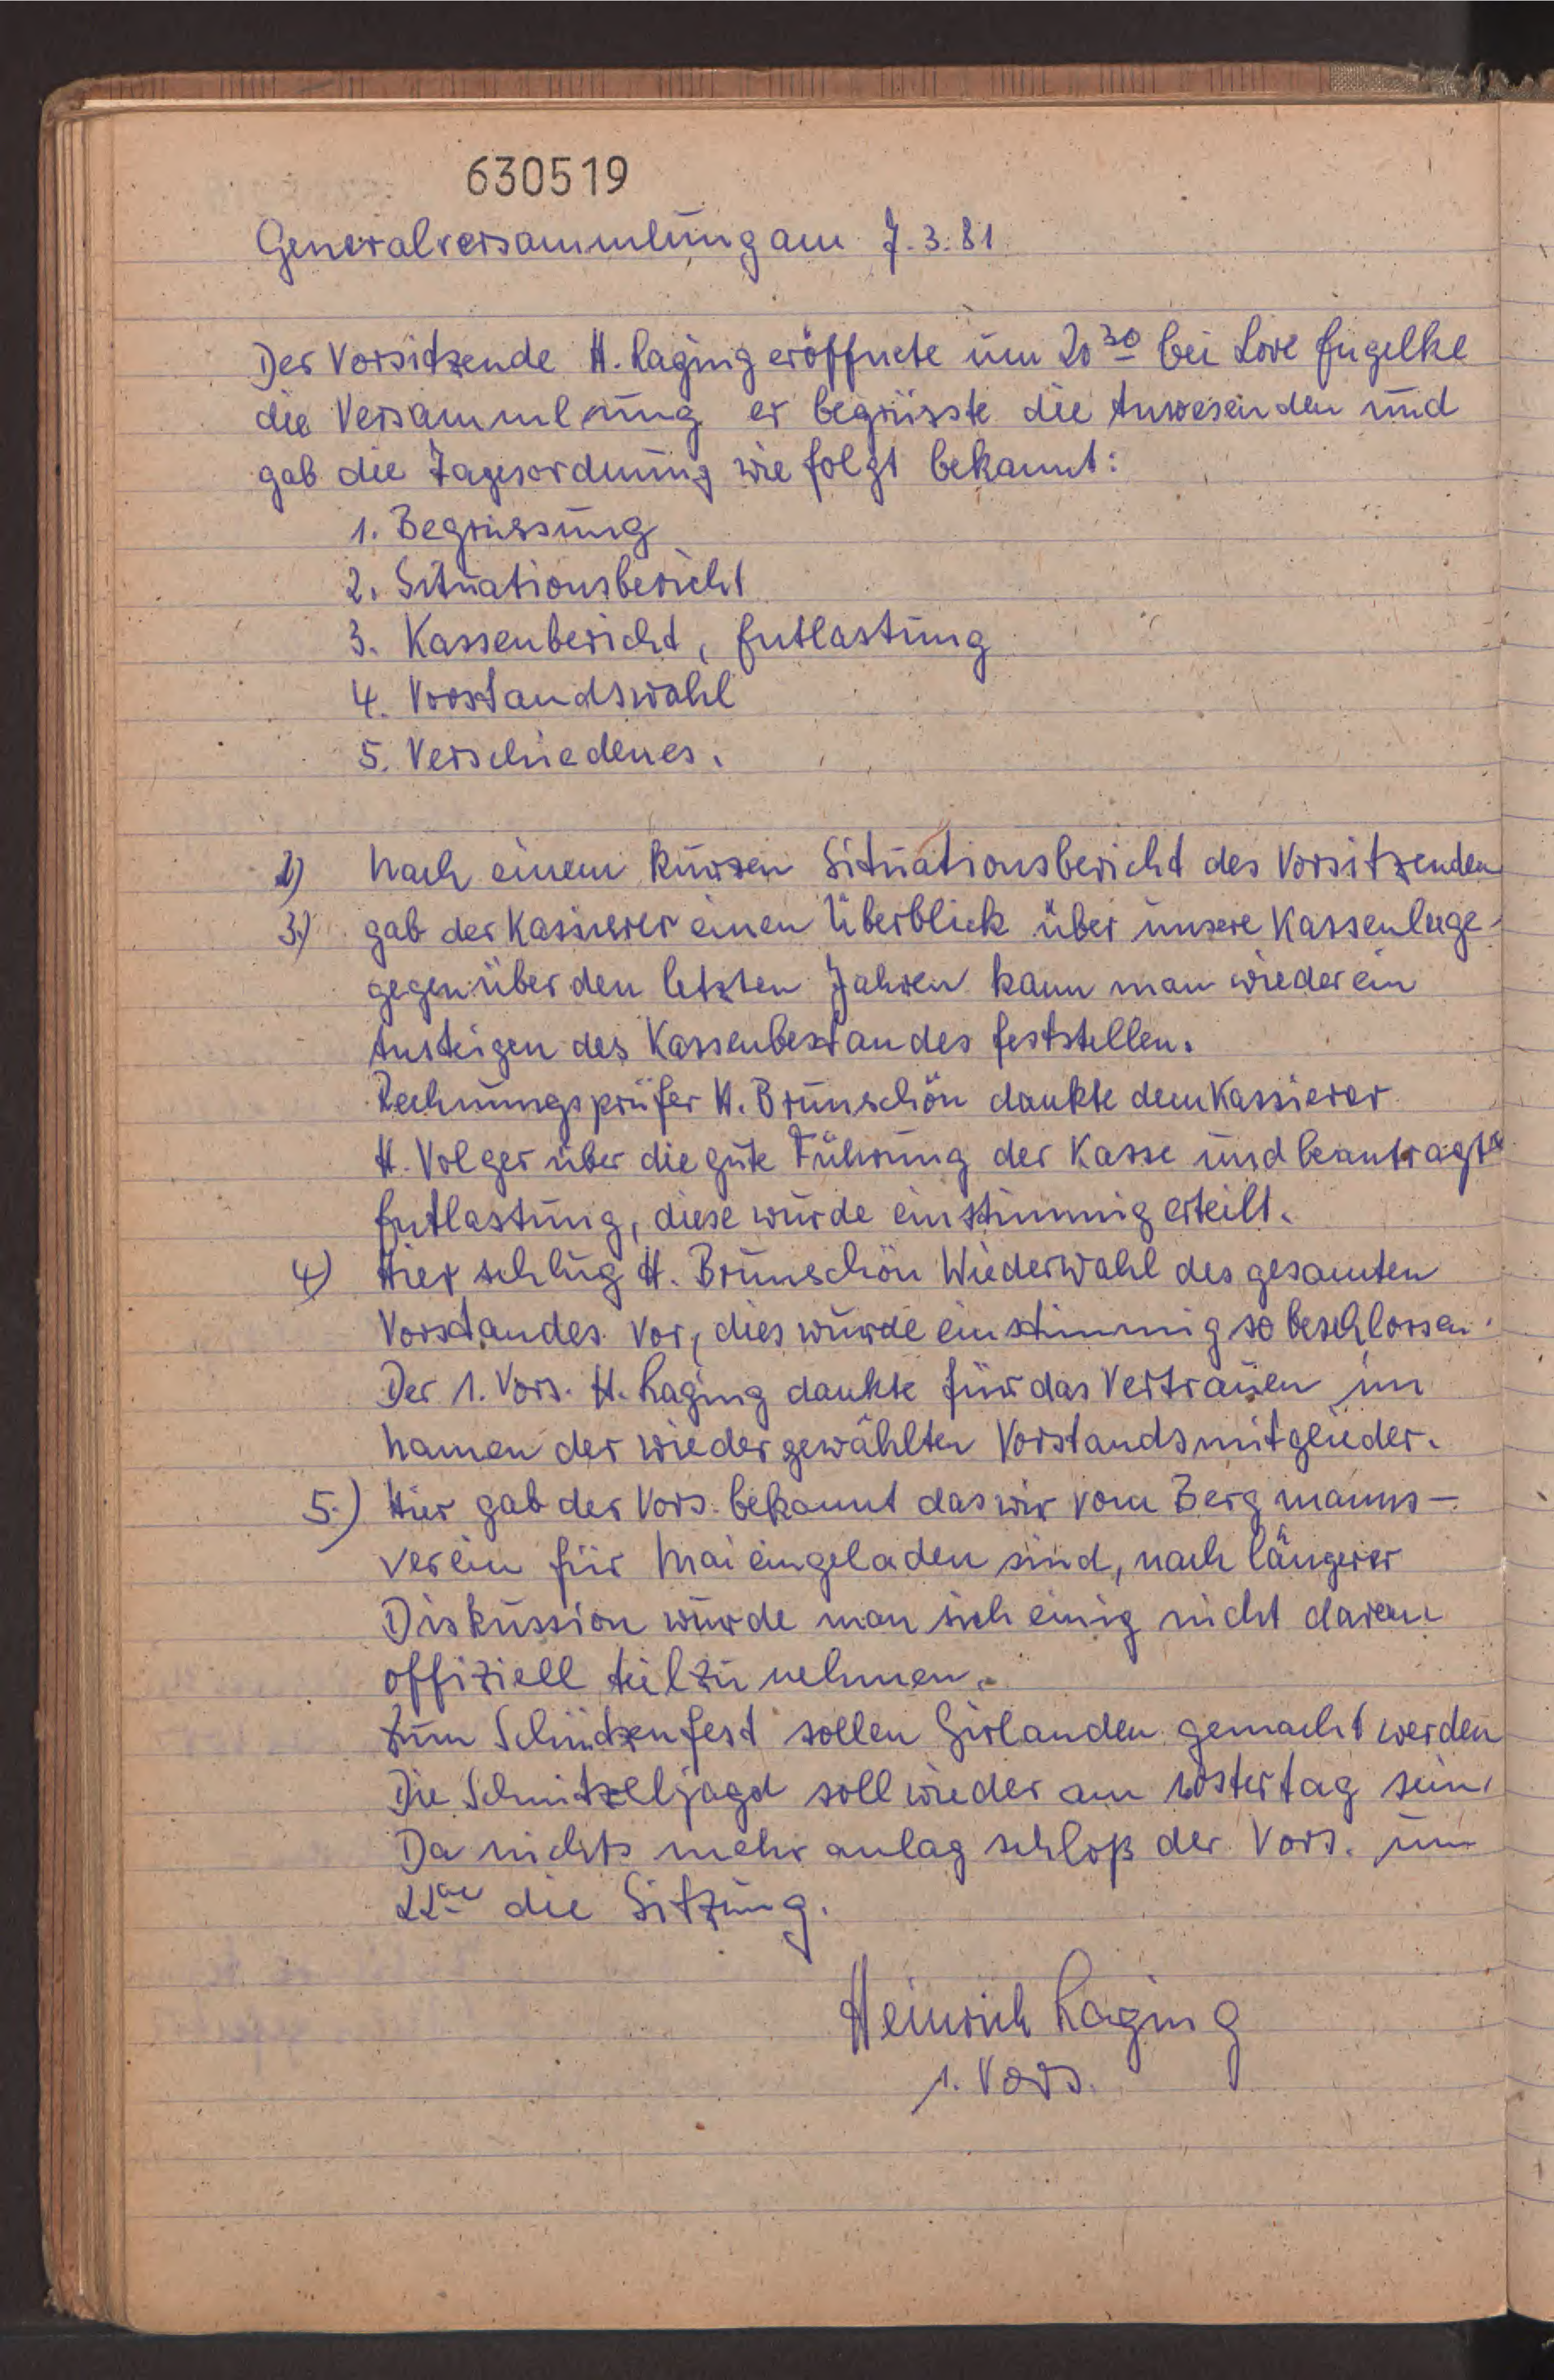 630519
Generalversammlung am 7.3.81
Der Vorsitzende H. Laging eröffnete um 20³⁰ bei Lore Engelke
die Versammlung er begrüsste die Anwesenden und
gab die Tagesordnung wie folgt bekannt:
1. Begrüssung
2. Situationsbericht
3. Kassenbericht, Entlastung
4. Vorstandswahl
5. Verschiedenes.
2) Nach einem kurzen Situationsbericht des Vorsitzenden
3.) gab der Kasierer einen Überblick über unsere Kassenlage
gegenüber den letzten Jahren kann man wieder ein
Ansteigen des Kassenbestandes feststellen.
Rechnungsprüfer H. Brunschön dankte dem Kassierer
H. Volger über die gute Führung der Kasse und beantragte
Entlastung, diese wurde einstimmig erteilt.
4) Hier schlug H. Brunschön Wiederwahl des gesamten
Vorstandes vor, dies wurde einstimmig so beschlossen.
Der 1. Vors. H. Laging dankte für das Vertrauen im
Namen der wiedergewählten Vorstandsmitglieder.
5.) Hier gab der Vors. bekannt das wir vom Bergmanns-
verein für Mai eingeladen sind, nach längerer
Diskussion wurde man sich einig nicht daran
offiziell teilzunehmen.
Zum Schützenfest sollen Girlanden gemacht werden
Die Schnitzeljagd soll wieder am Ostertag sein.
Da nichts mehr anlag schloß der Vors. um
22⁰⁰ die Sitzung.
Heinrich Laging
1. Vors.